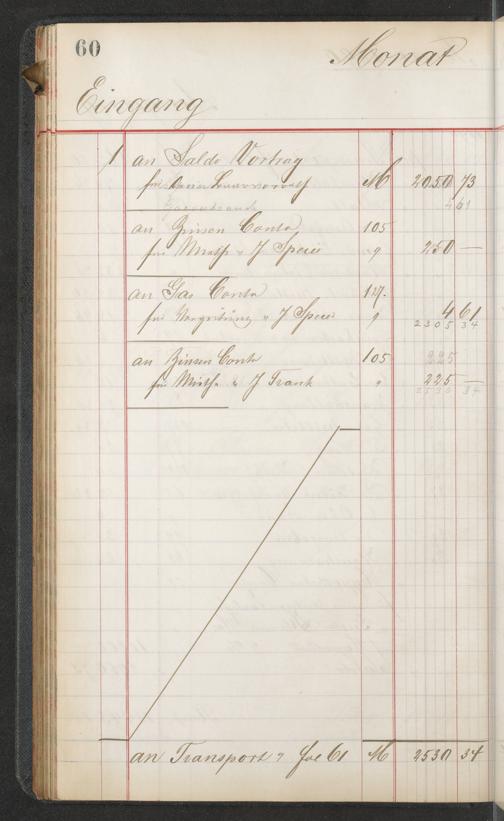 60
Monat
Eingang
1 an Saldo Vortrag
für M 2050 73
4 61
an Zinsen Conto 105
für Miethe v J Speier " 9 250 —
an Gas Conto 127.
für v J Speier 9 4 61
2305 34
an Zinsen Conto 105 225
für Miethe v J Frank " 225 —
2530 34
an Transport a fol 61 M 2530 34